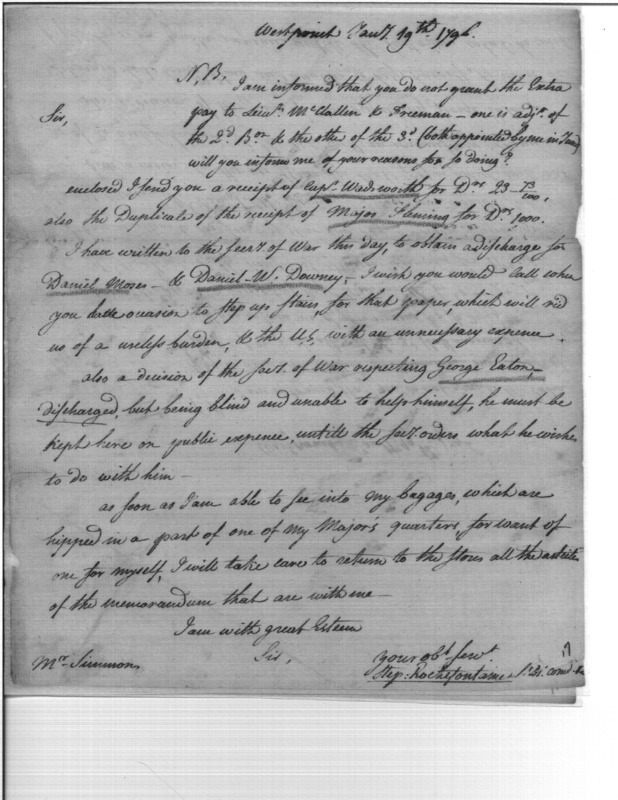 Westpoint Jany. 19th 1796.
N.B. I am informed that you do not grant the Extra
pay to Lieuts. McClallen & Freeman - one is adjt. of
Sir,
the 2d. Bon & the other of the 3d. (both appointed by me in
will you inform me of your reasons for so doing?
enclosed I send you a receipt of Capt. Wadsworth for Drs. 23 73/100,
also the Duplicate of the receipt of Major Fleming for Drs. 1,000.
I have written to the Secry. of War this day, to obtain a discharge for
Daniel Moses - & Daniel W. Downey, I wish you would call when
you have occasion to step up stairs, for that paper, which will rid
us of a useless burden, & the U.S. with an unnecessary expence.
also a decision of the Secy. of War respecting George Eaton,
discharged, but being blind and unable to help himself, he must be
kept here on public expence, untill the Secy. orders what he wishes
to do with him -
as soon as I am able to see into my bagages, which are
hipped in a part of one of my Majors quarters, for want of
one for myself, I will take care to return to the stores all the articles
of the memorandum that are with me -
I am with great Esteem
Sir,
your obt. Servt.
Mr. Simmons
Step: Rochefontaine